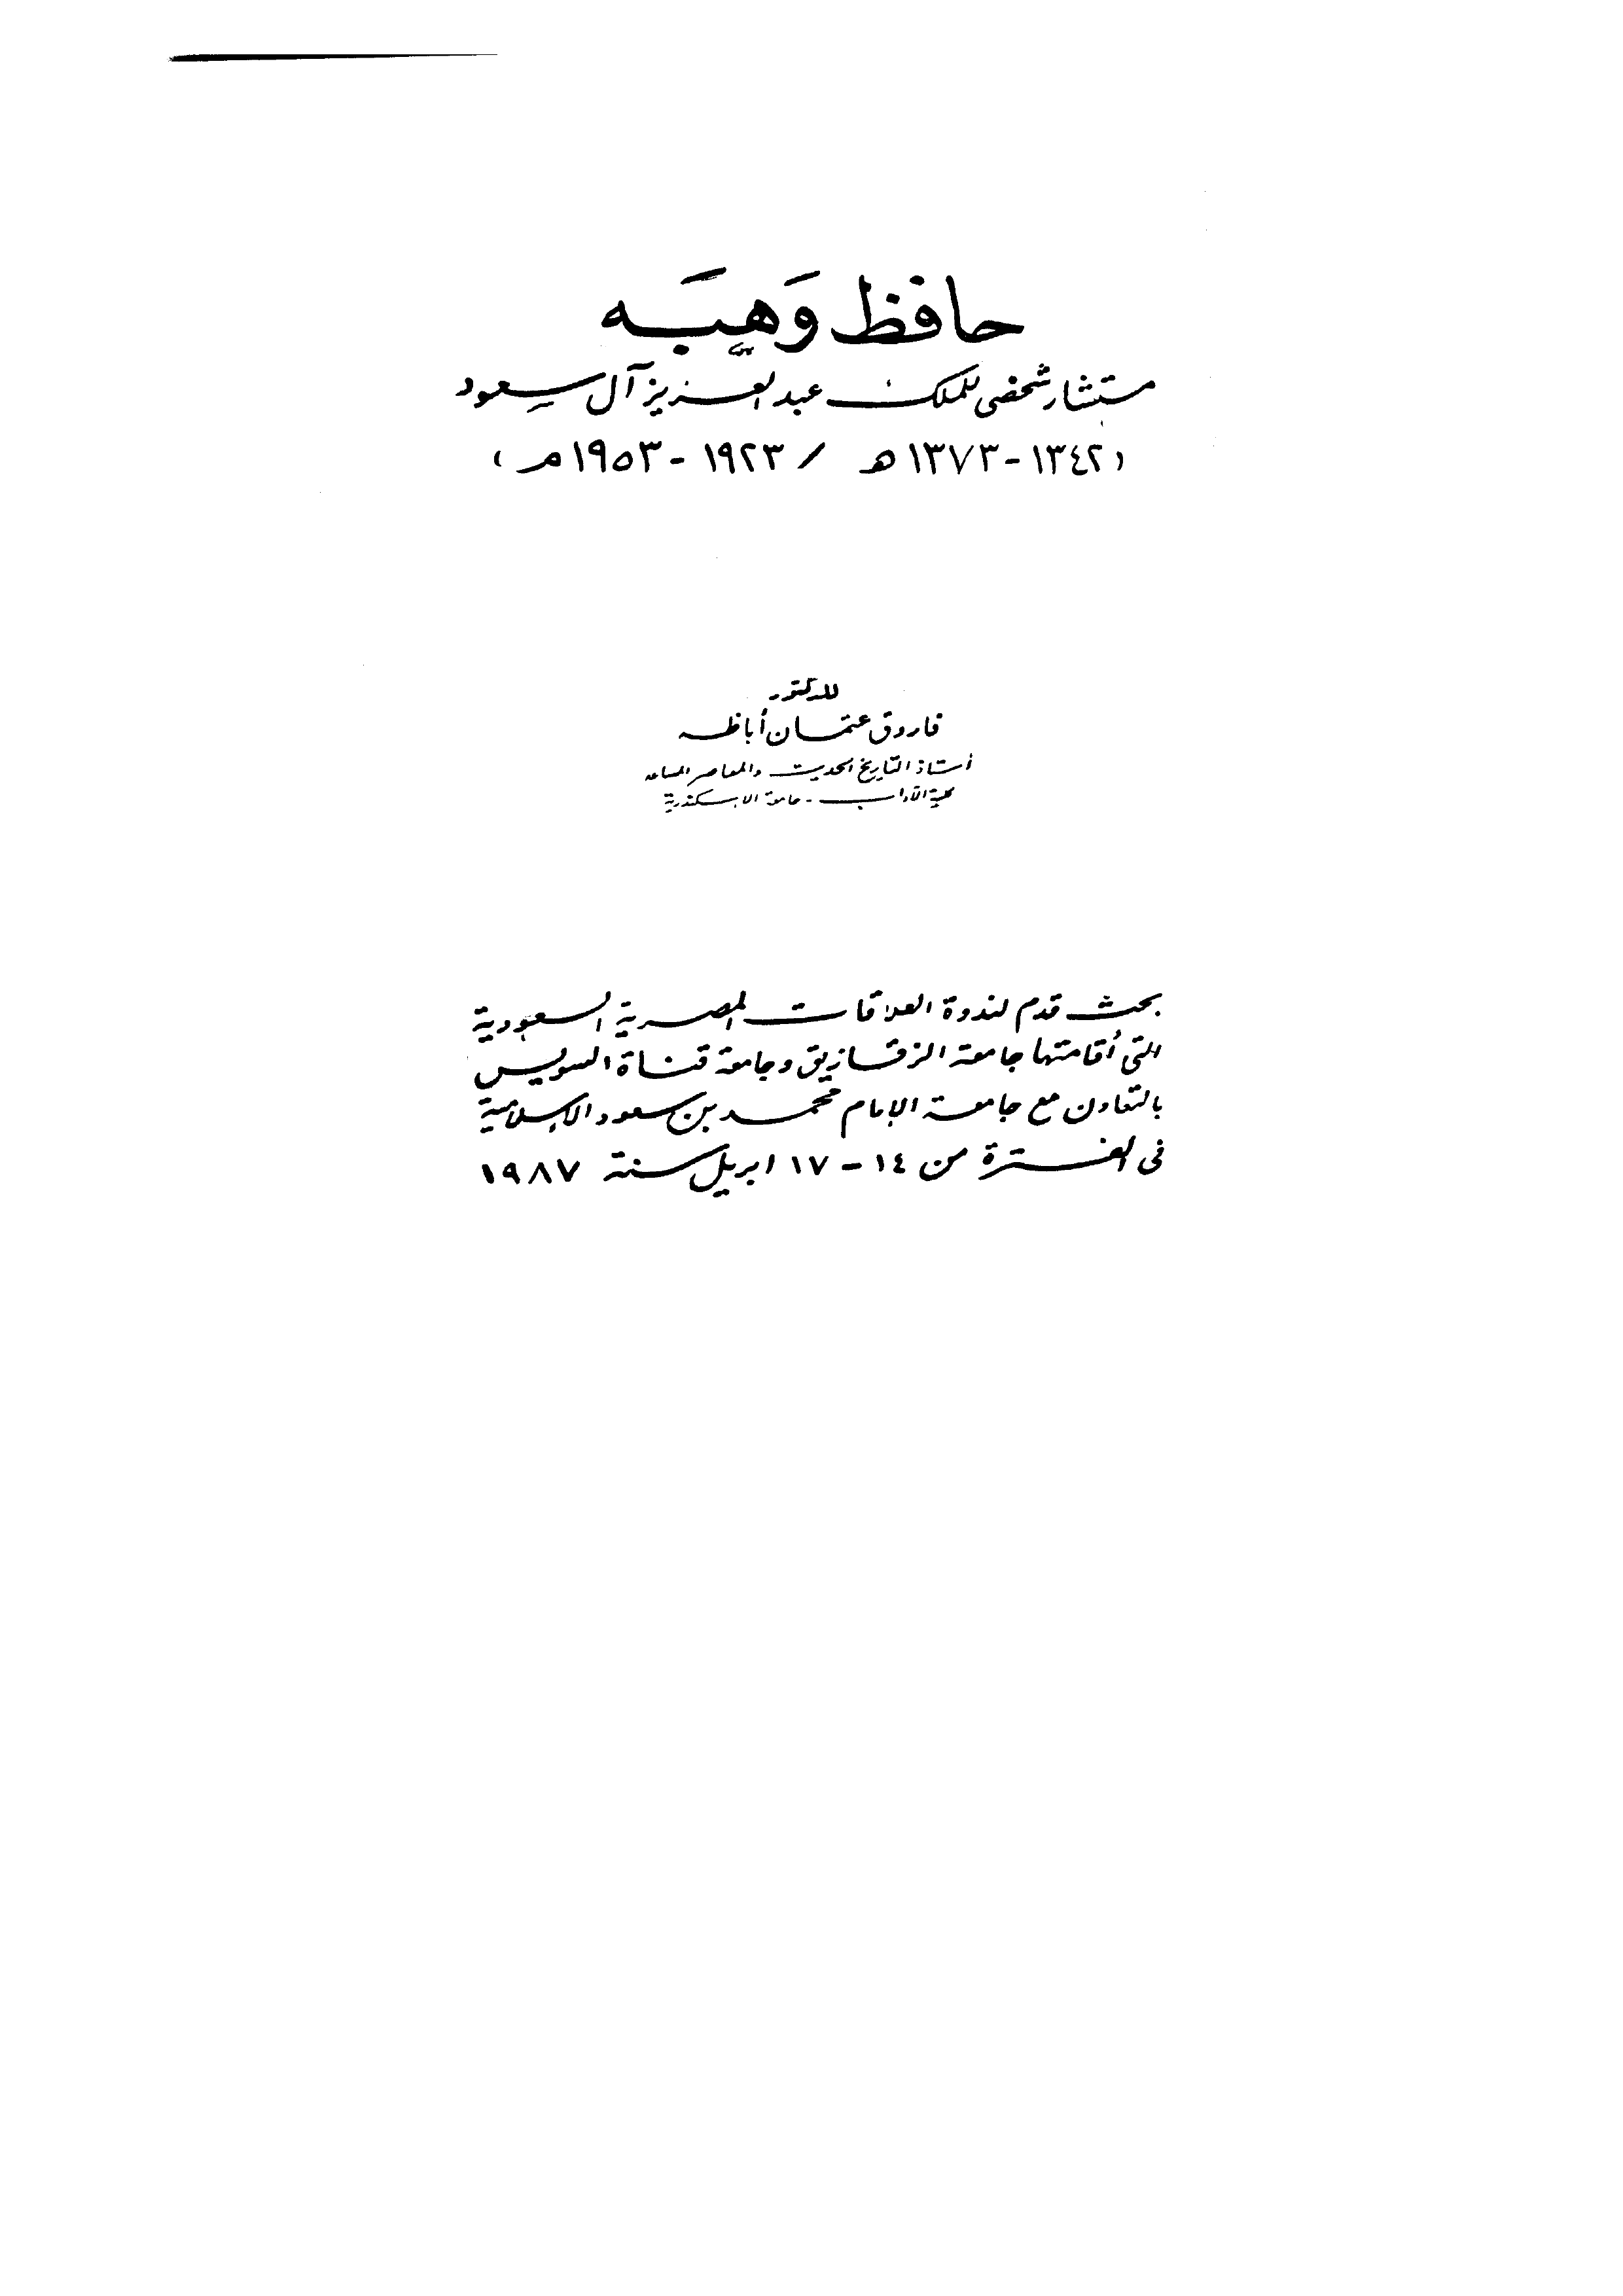 حافظ وَهبَه
مستشار شخصى للملك عبد العزيز آل سعود
(١٣٤٢ - ١٣٧٣ هـ / ١٩٢٣ - ١٩٥٣ م)
للدكتور
فاروق عثمان أباظه
أستاذ التاريخ الحديث والمعاصر المساعد
كلية الآداب - جامعة الاسكندرية
بحث قدم لندوة العلاقات المصرية السعودية
التى أقامتها جامعة الزقازيق وجامعة قناة السويس
بالتعاون مع جامعة الإمام محمد بن سعود الإسلامية
فى الفترة من ١٤ - ١٧ ابريل سنة ١٩٨٧